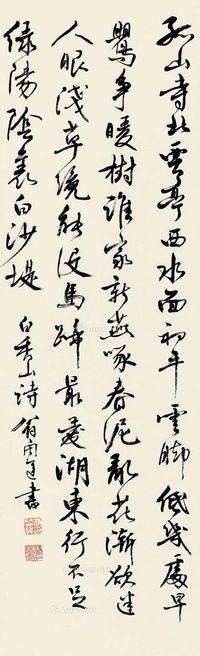 孤山寺北賈亭西水面初平雲脚低幾處早
鶯争暖樹誰家新燕啄春泥亂花漸欲迷
人眼淺草纔能没馬蹄最愛湖東行不足
綠楊陰裏白沙堤
白香山詩 翁闓運書